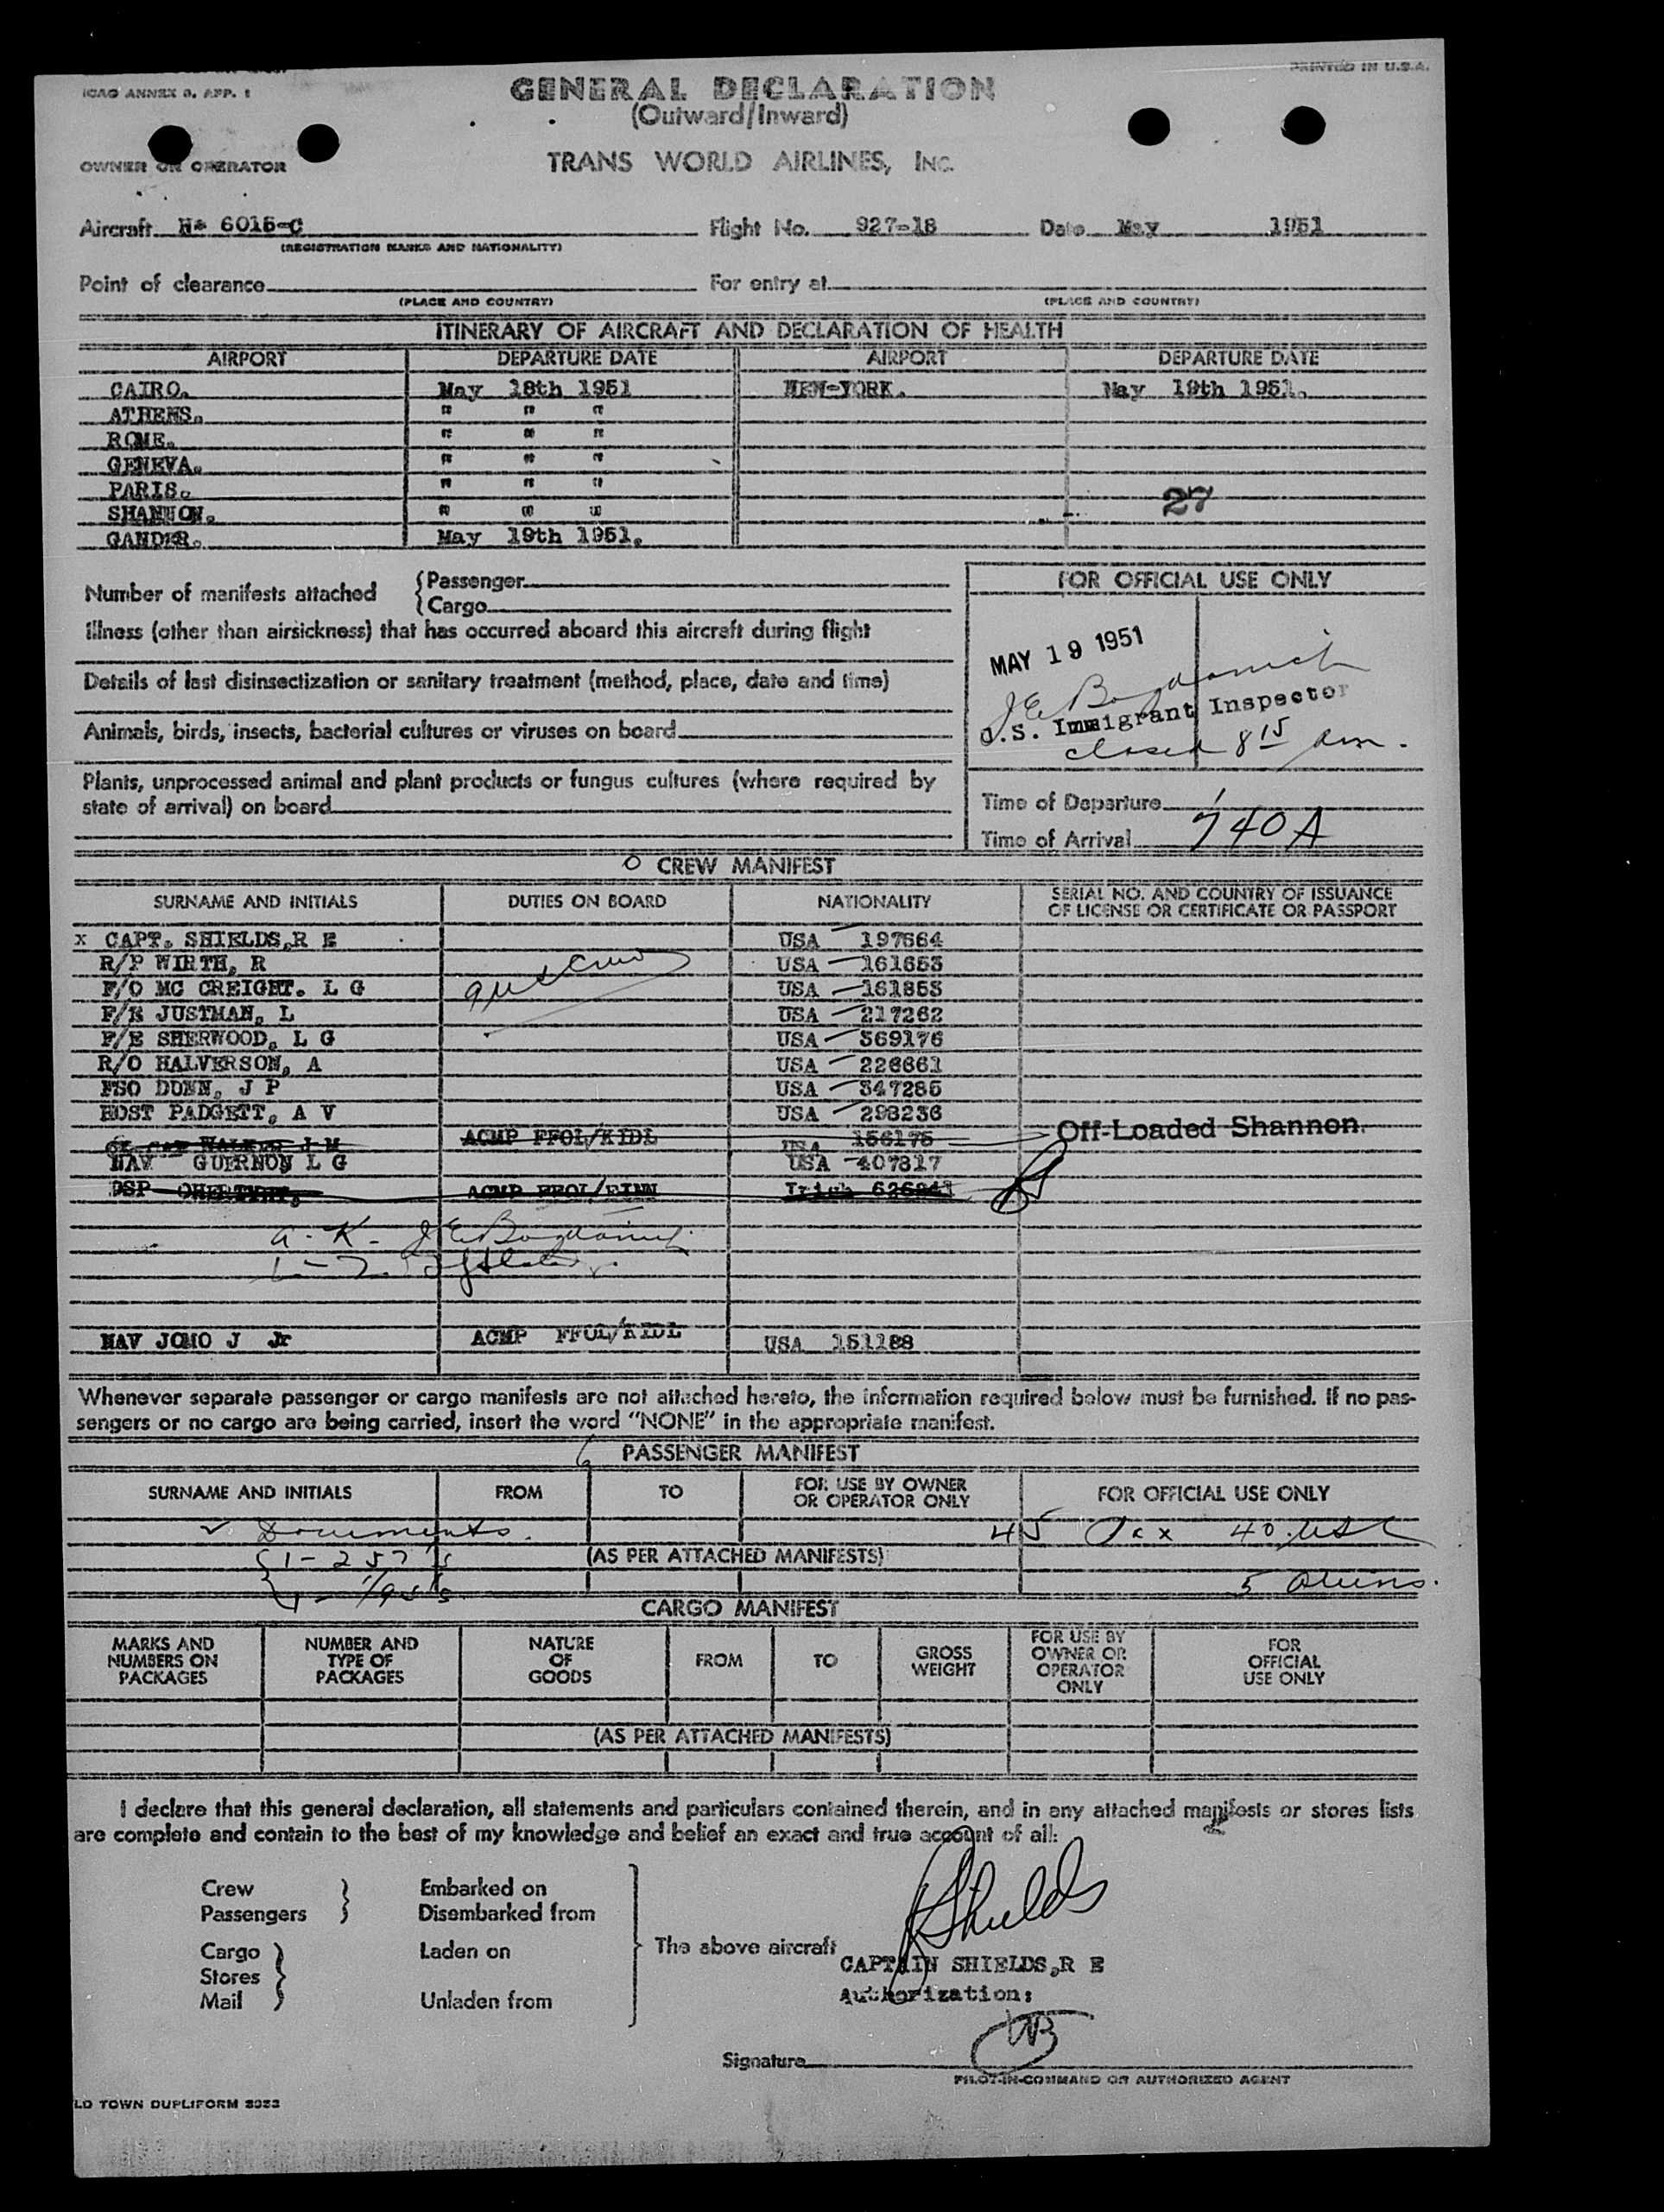 PRINTED IN U.S.A.
ICAO ANNEX 9, APP. 1
GENERAL DECLARATION
(Outward/Inward)
OWNER OR OPERATOR
TRANS WORLD AIRLINES, INC.
Aircraft N* 6015-C Flight No. 927-18 Date May 1951
(REGISTRATION MARKS AND NATIONALITY)
Point of clearance For entry at
(PLACE AND COUNTRY) (PLACE AND COUNTRY)
ITINERARY OF AIRCRAFT AND DECLARATION OF HEALTH
AIRPORT DEPARTURE DATE AIRPORT DEPARTURE DATE
CAIRO. May 18th 1951 NEW-YORK. May 19th 1951.
ATHENS. " " "
ROME. " " "
GENEVA. " " "
PARIS. " " "
27
SHANNON. " " "
GANDER. May 19th 1951.
Number of manifests attached { Passenger
{ Cargo
FOR OFFICIAL USE ONLY
Illness (other than airsickness) that has occurred aboard this aircraft during flight
MAY 19 1951
Details of last disinsectization or sanitary treatment (method, place, date and time)
J E Bogdanich
U.S. Immigrant Inspector
Animals, birds, insects, bacterial cultures or viruses on board
closed 8 15 am.
Plants, unprocessed animal and plant products or fungus cultures (where required by
state of arrival) on board
Time of Departure
Time of Arrival 740 A
CREW MANIFEST
SURNAME AND INITIALS DUTIES ON BOARD NATIONALITY SERIAL NO. AND COUNTRY OF ISSUANCE
OF LICENSE OR CERTIFICATE OR PASSPORT
x CAPT. SHIELDS,R E USA 197664
R/P WIRTH, R USA 161653
F/O MC CREIGHT. L G USA 161853
F/E JUSTMAN, L USA 217262
F/E SHERWOOD, L G USA 369176
R/O HALVERSON, A USA 226661
FSO DUNN, J P USA 347285
HOST PADGETT, A V USA 298236
WALKER J M ACMP FFOL/KIDL USA 156175 Off-Loaded Shannon.
NAV GUERNON L G USA 407817
DSP ACMP FFOL/EINN Irish
J E Bogdanich
NAV JOMO J Jr ACMP FFOL/KIDL USA 151188
Whenever separate passenger or cargo manifests are not attached hereto, the information required below must be furnished. If no pas-
sengers or no cargo are being carried, insert the word "NONE" in the appropriate manifest.
PASSENGER MANIFEST
SURNAME AND INITIALS FROM TO FOR USE BY OWNER
OR OPERATOR ONLY FOR OFFICIAL USE ONLY
Documents. 45 Pax 40 USC
1 - 257's (AS PER ATTACHED MANIFESTS)
5 Aliens.
CARGO MANIFEST
MARKS AND
NUMBERS ON
PACKAGES
NUMBER AND
TYPE OF
PACKAGES
NATURE
OF
GOODS
FROM
TO
GROSS
WEIGHT
FOR USE BY
OWNER OR
OPERATOR
ONLY
FOR
OFFICIAL
USE ONLY
(AS PER ATTACHED MANIFESTS)
I declare that this general declaration, all statements and particulars contained therein, and in any attached manifests or stores lists
are complete and contain to the best of my knowledge and belief an exact and true account of all:
Crew } Embarked on
Passengers } Disembarked from
Cargo } Laden on
Stores
Mail } Unladen from
The above aircraft
Shields
CAPTAIN SHIELDS,R E
Authorization:
Signature
PILOT-IN-COMMAND OR AUTHORIZED AGENT
LD TOWN DUPLIFORM